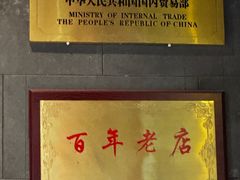 中华人民共和国国内贸易部
MINISTRY OF INTERNAL TRADE
THE PEOPLE'S REPUBLIC OF CHINA
百年老店